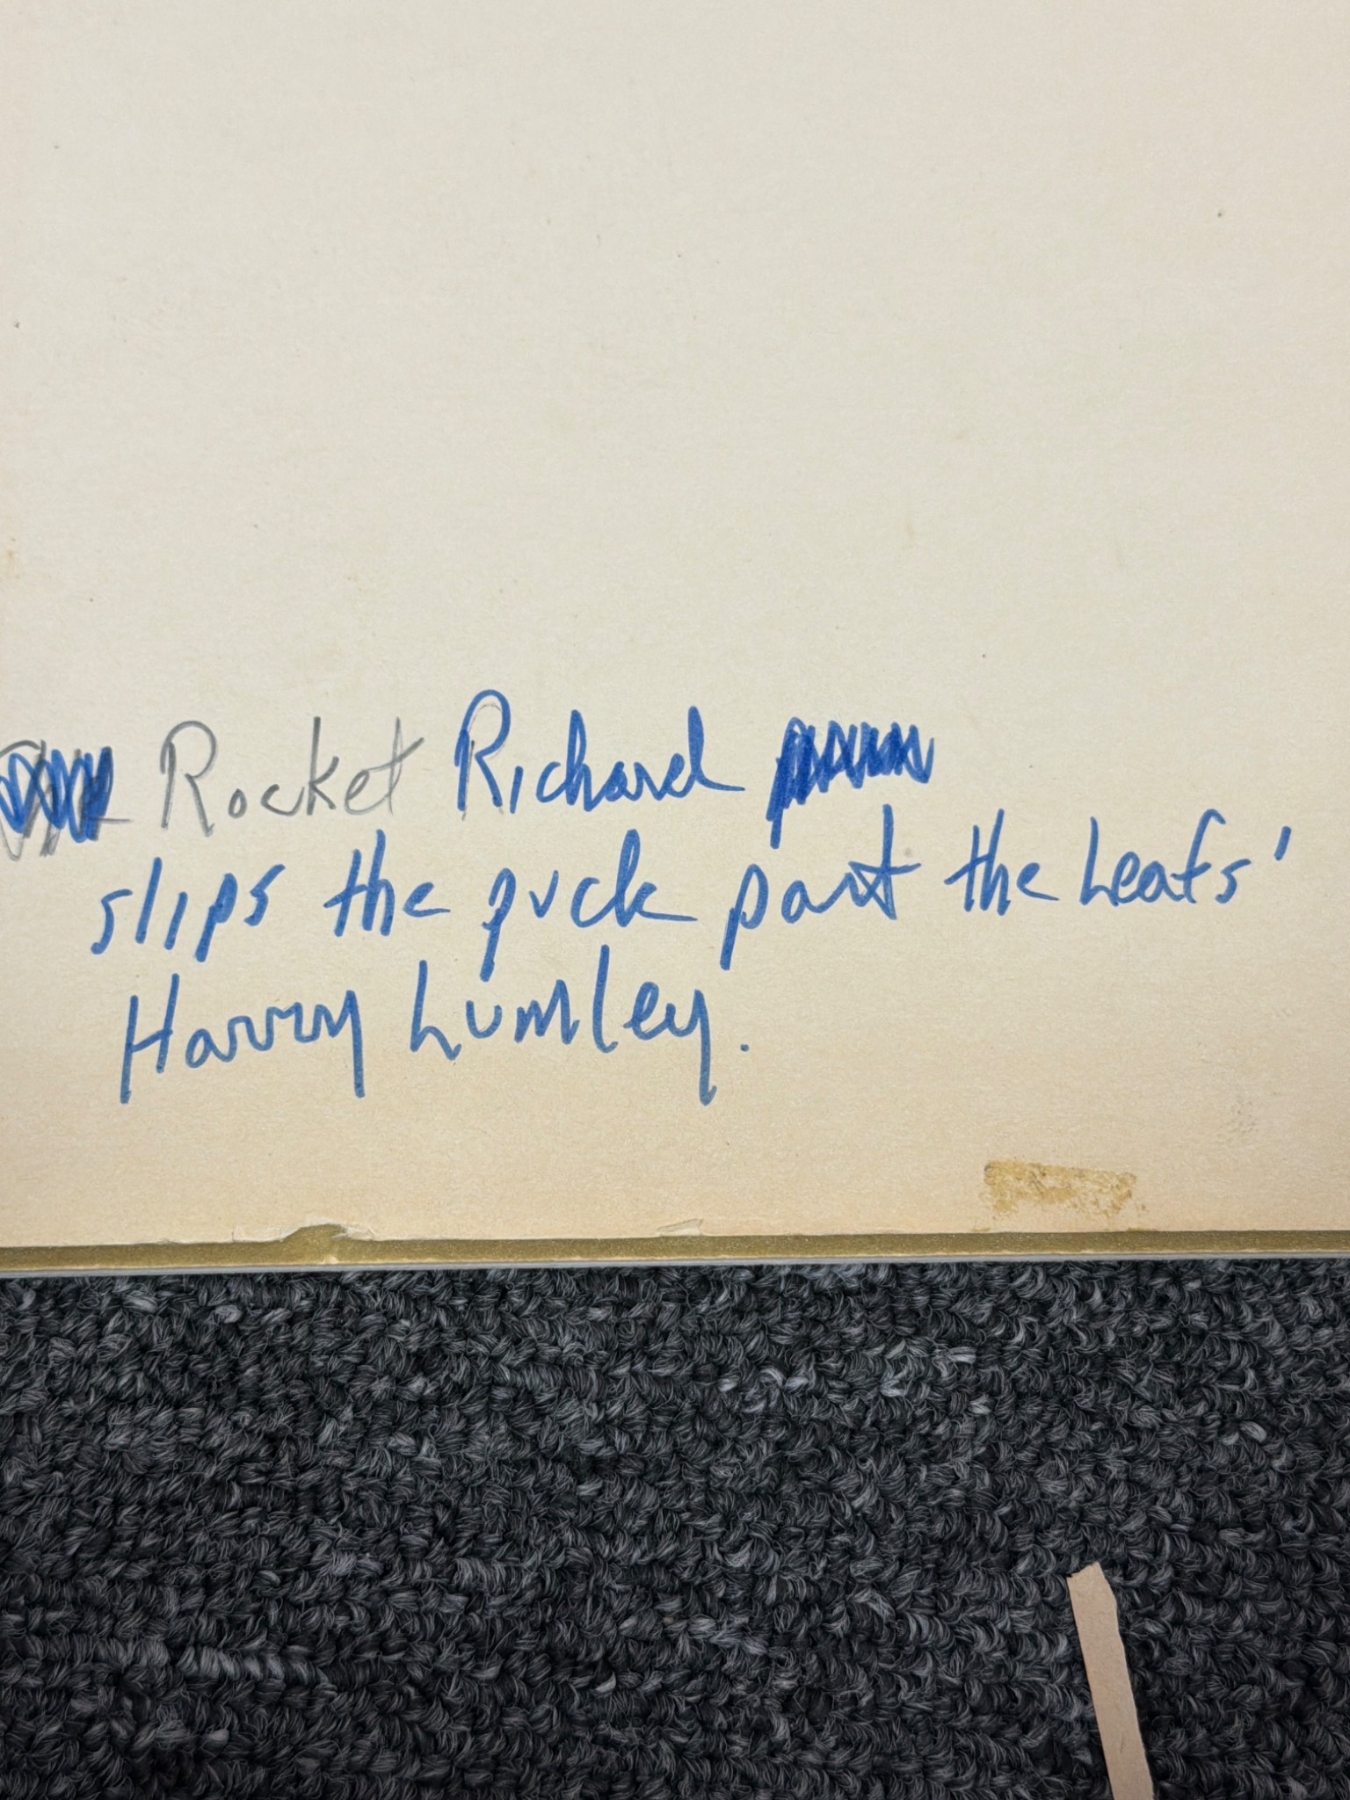 Rocket Richard
slips the puck past the Leafs'
Harry Lumley.